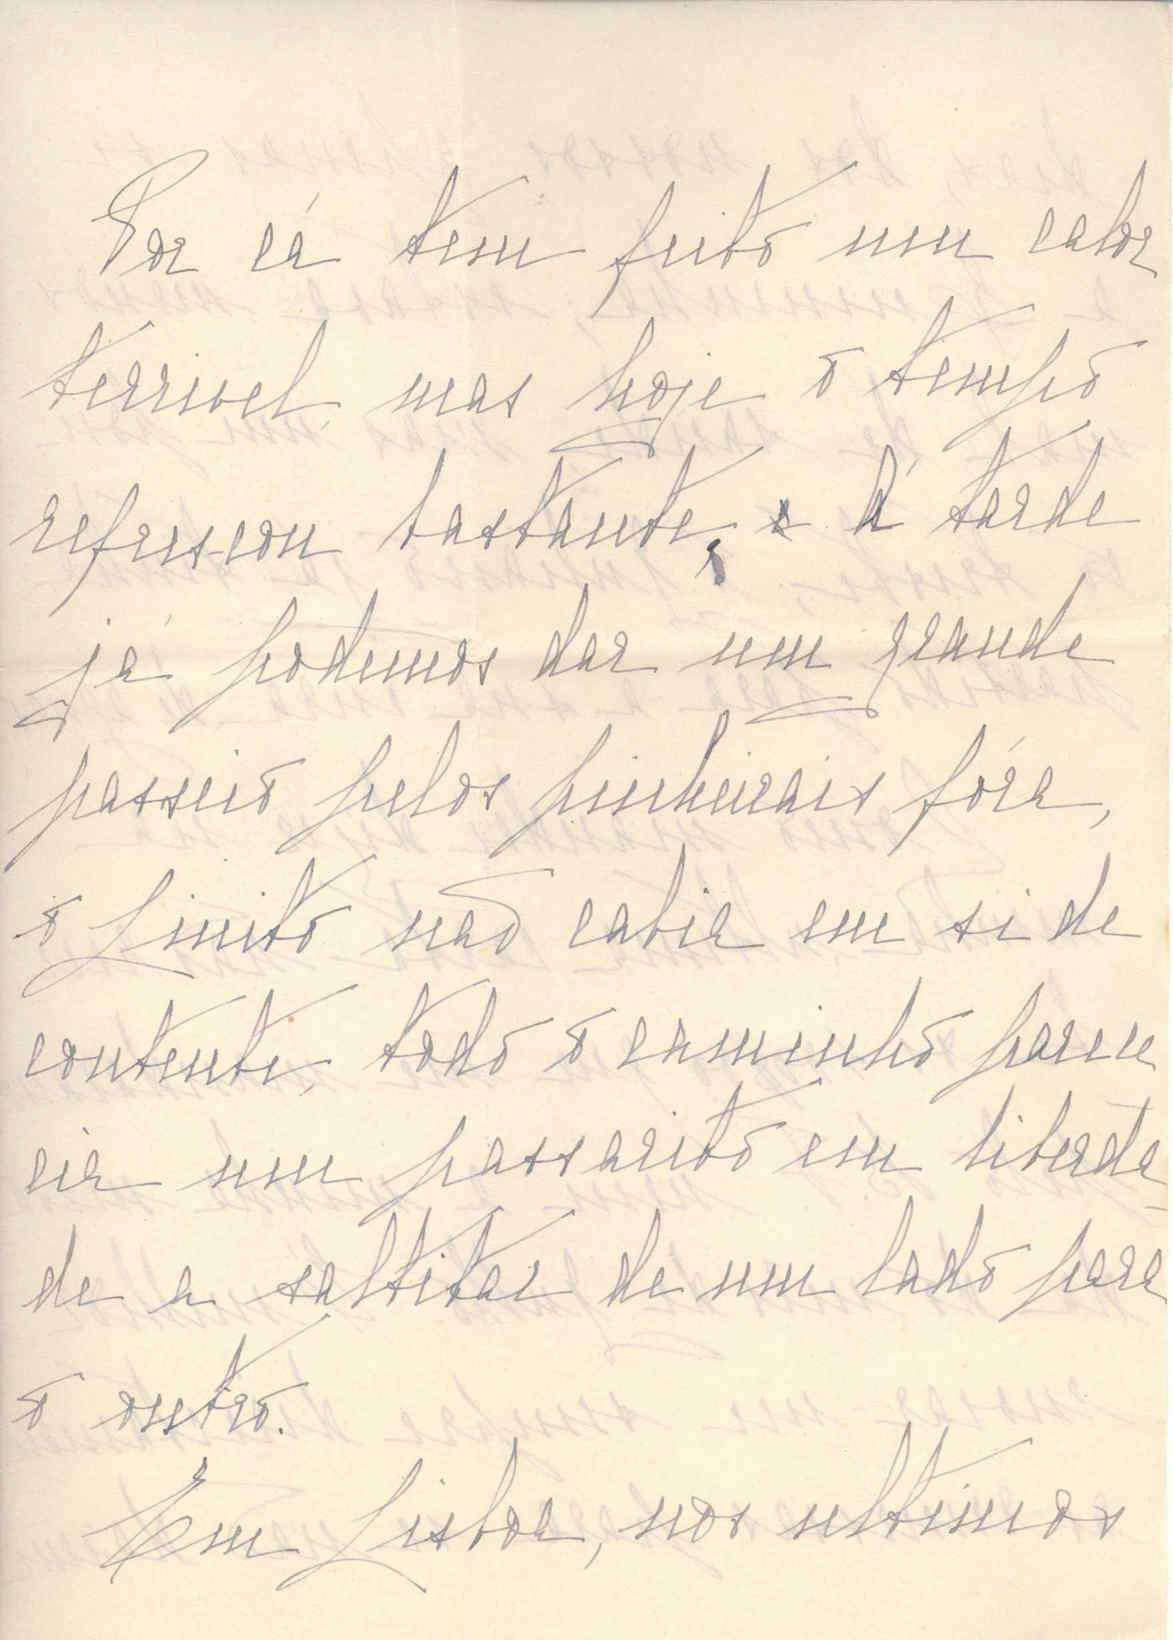 Por cá tem feito um calor
terrivel, mas hoje o tempo
refrescou bastante, e á tarde
já podemos dar um grande
passeio pelos pinheirais fóra,
o Linito não cabia em si de
contente, todo o caminho pare
cia um passarito em liberda-
de a saltitar de um lado para
o outro.
Em Lisboa, nos ultimos